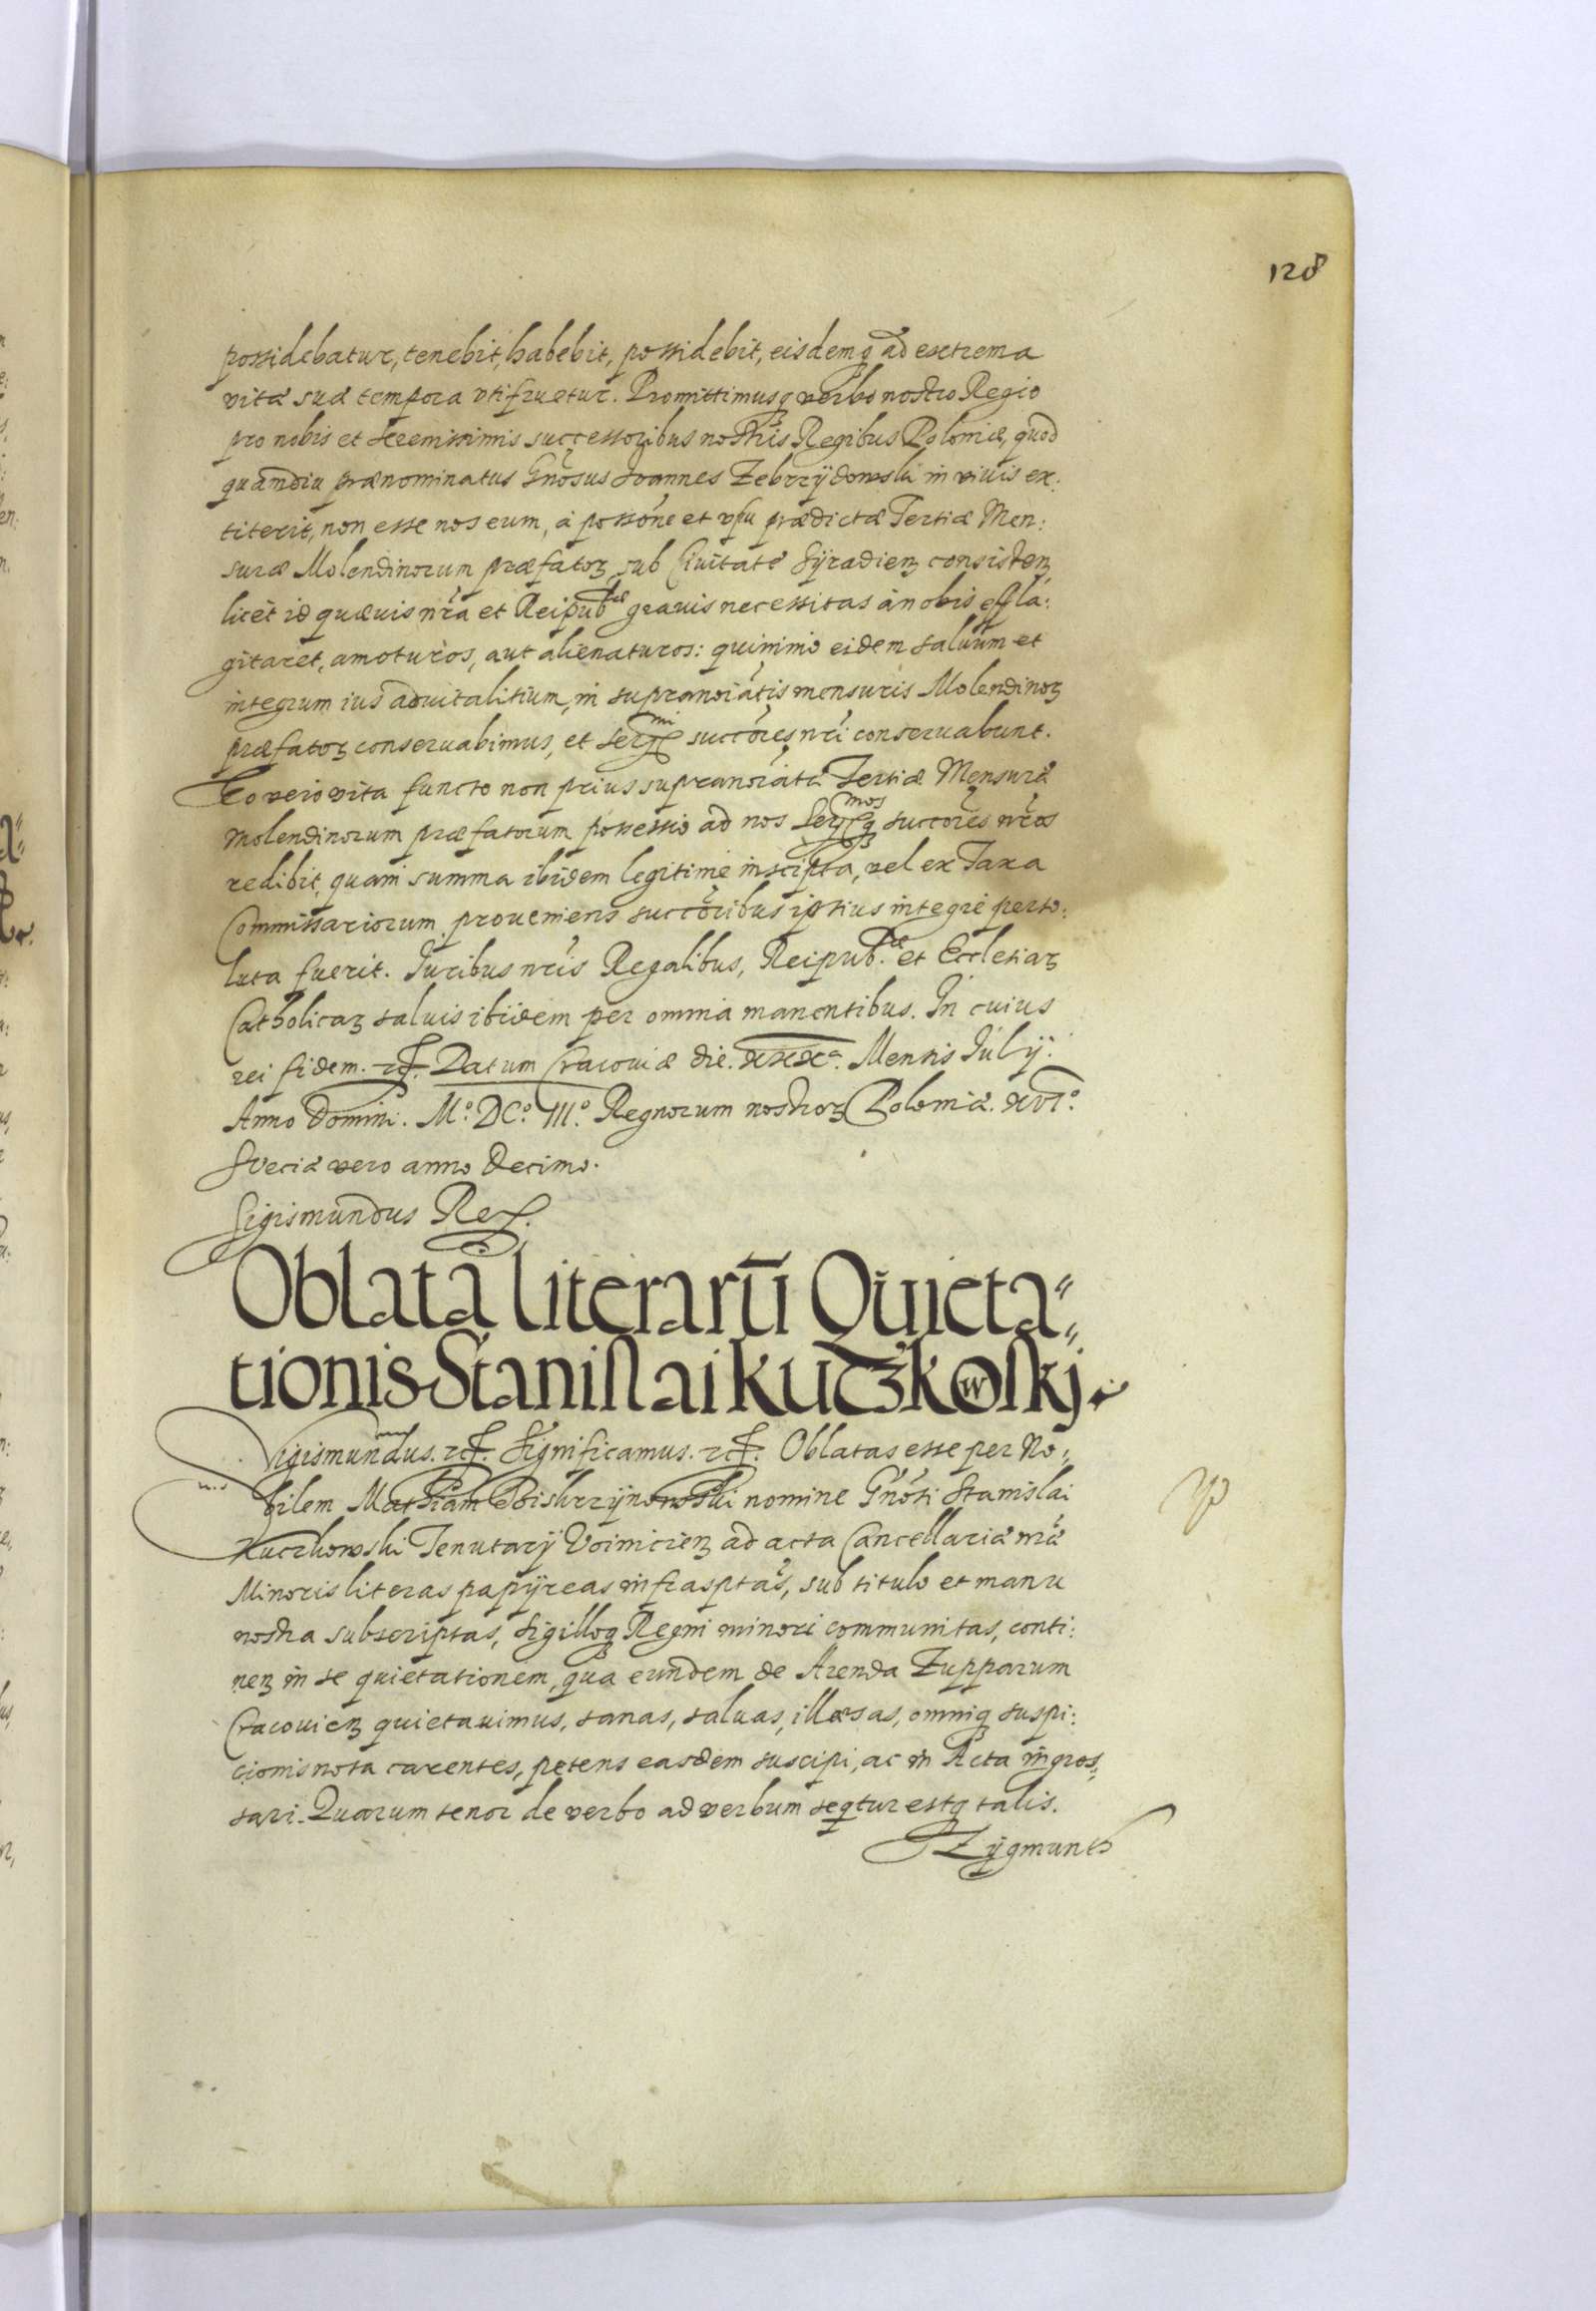 128
possidebatur, tenebit, habebit, possidebit, eisdemq ad extrema
vitæ suæ tempora vtifruetur. Promittimusq verbo nostro Regio
pro nobis et Serenissimis successoribus nostris Regibus Poloniæ, quod
quamdiu prænominatus Gnosus Joannes Zebrzÿdowski in viuis ex:
titerit, non esse nos eum, à possone et vsu prædictæ Tertiæ Men:
suræ Molendinorum præfatoꝝ sub Ciuitate Sÿradienꝫ consistenꝫ
licèt id quæuis nra et Reipubcæ grauis necessitas à nobis effla:
gitaret, amoturos, aut alienaturos: quinimo eidem saluum et
integrum ius aduitalitium, in supranoiatis mensuris Molendinoꝝ
præfatoꝝ conseruabimus, et Sermi succores nri conseruabunt.
Eo vero vita functo non prius supranoiatæ Tertiæ Mensuræ
molendinorum præfatorum possessio ad nos Sermosq succores nros
redibit, quam summa ibidem legitimè inscripta, vel ex Taxa
Commissariorum proueniens succoribus ipsius integrè perso:
luta fuerit. Juribus nris Regalibus, Reipub.cæ et Ecclesiaꝝ
Catholicaꝝ saluis ibidem per omnia manentibus. In cuius
rei fidem. etc. Datum Cracouiæ die. xxxa. Mensis Julÿ.
Anno Domini. Mo. DCo. IIIo. Regnorum nostroꝝ Poloniæ. xvIo.
Sueciæ vero anno Decimo.
Sigismundus Rex.
Oblata literarū Quieta=
tionis Stanislai Kuczkowskj.
Sigismundus. etc. Significamus. etc. Oblatas esse per No:
bilem Mathiam Biskrzÿnowski nomine Gnosi Stanislai
Kuczkowski Tenutarÿ Voinicienꝫ ad acta Cancellariæ nræ
Minoris literas papÿreas infrasptas, sub titulo et manu
nostra subscriptas, Sigilloq Regni minori communitas, conti:
nenꝫ in se quietationem, qua eundem de Arenda Zupparum
Cracouienꝫ quietauimus, sanas, saluas, illæsas, omniq suspi:
cionis nota carentes, petens easdem suscipi, ac in Acta ingros:
sari. Quarum tenor de verbo ad verbum seqtur estq talis.
Zÿgmunth